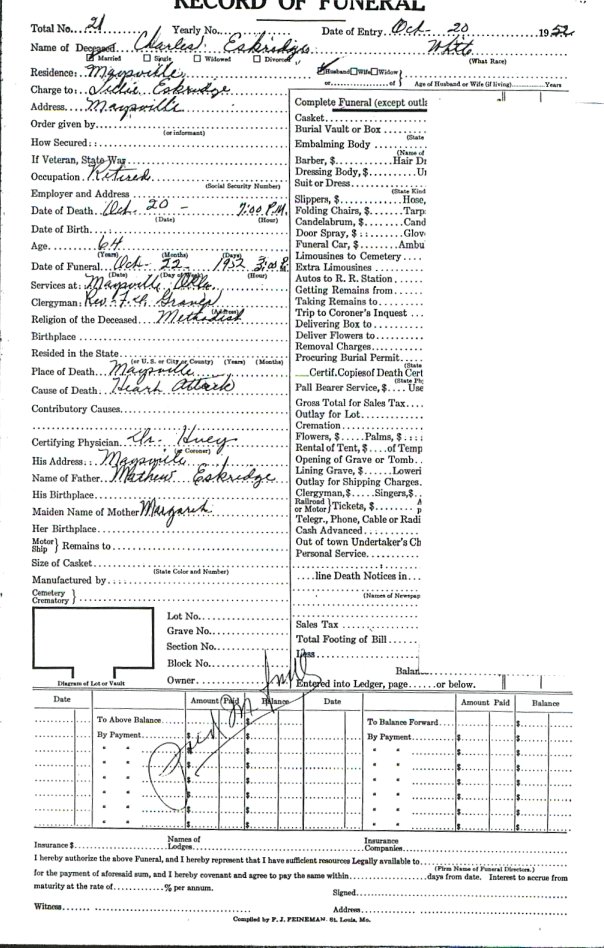 RECORD OF FUNERAL
Total No. 21 Yearly No. Date of Entry Oct- 20 1952
Name of Deceased Charles Eskridge White
Married Single Widowed Divorced (What Race)
Residence: Maysville Husband Wife Widow
or of Age of Husband or Wife (if living) Years
Charge to: Eskridge
Address Maysville
Order given by
(or informant)
How Secured:
If Veteran, State War
Occupation Retired
(Social Security Number)
Employer and Address
Date of Death Oct- 20 - 7:00 P.M.
(Date) (Hour)
Date of Birth
Age 64
(Years) (Months) (Days)
Date of Funeral Oct- 22 1952
(Date) (Hour)
Services at: Maysville Okla.
(Address)
Clergyman: Rev.
Religion of the Deceased Methodist
Birthplace
Resided in the State
(or U. S. or City or County) (Years) (Months)
Place of Death Maysville
Cause of Death Heart Attack
Contributory Causes
Certifying Physician Dr. Huey
(or Coroner)
His Address: Maysville
Name of Father Mathew Eskridge
His Birthplace
Maiden Name of Mother Margaret
Her Birthplace
Motor Ship } Remains to
Size of Casket
(State Color and Number)
Manufactured by
Cemetery
Crematory }
Lot No.
Grave No.
Section No.
Block No.
Owner
Diagram of Lot or Vault
Complete Funeral (except outl
Casket
Burial Vault or Box
(State
Embalming Body
(Name of
Barber, $ Hair D
Dressing Body, $ U
Suit or Dress
(State Kind
Slippers, $ Hose,
Folding Chairs, $ Tarp
Candelabrum, $ Cand
Door Spray, $ Glov
Funeral Car, $ Ambu
Limousines to Cemetery
Extra Limousines
Autos to R. R. Station
Getting Remains from
Taking Remains to
Trip to Coroner's Inquest
Delivering Box to
Deliver Flowers to
Removal Charges
Procuring Burial Permit
(State
Certif. Copies of Death Cert
(State Ph
Pall Bearer Service, $ Use
Gross Total for Sales Tax
Outlay for Lot
Cremation
Flowers, $ Palms, $
Rental of Tent, $ of Temp
Opening of Grave or Tomb
Lining Grave, $ Loweri
Outlay for Shipping Charges
Clergyman, $ Singers, $
Railroad or Motor } Tickets, $
Telegr., Phone, Cable or Radi
Cash Advanced
Out of town Undertaker's Ch
Personal Service
line Death Notices in
(Names of Newspap
Sales Tax
Total Footing of Bill
Less
Balan
Entered into Ledger, page or below.
Date Amount Paid Balance Date Amount Paid Balance
To Above Balance $ To Balance Forward $
By Payment $ $ By Payment $ $
" " $ $ " " $ $
" " $ $ " " $ $
" " $ $ " " $ $
" " $ $ " " $ $
" " $ $ " " $ $
Paid In full
Insurance $ Names of Lodges Insurance Companies
I hereby authorize the above Funeral, and I hereby represent that I have sufficient resources Legally available to
(Firm Name of Funeral Directors.)
for the payment of aforesaid sum, and I hereby covenant and agree to pay the same within days from date. Interest to accrue from
maturity at the rate of % per annum. Signed
Witness Address
Compiled by F. J. FEINEMAN, St. Louis, Mo.